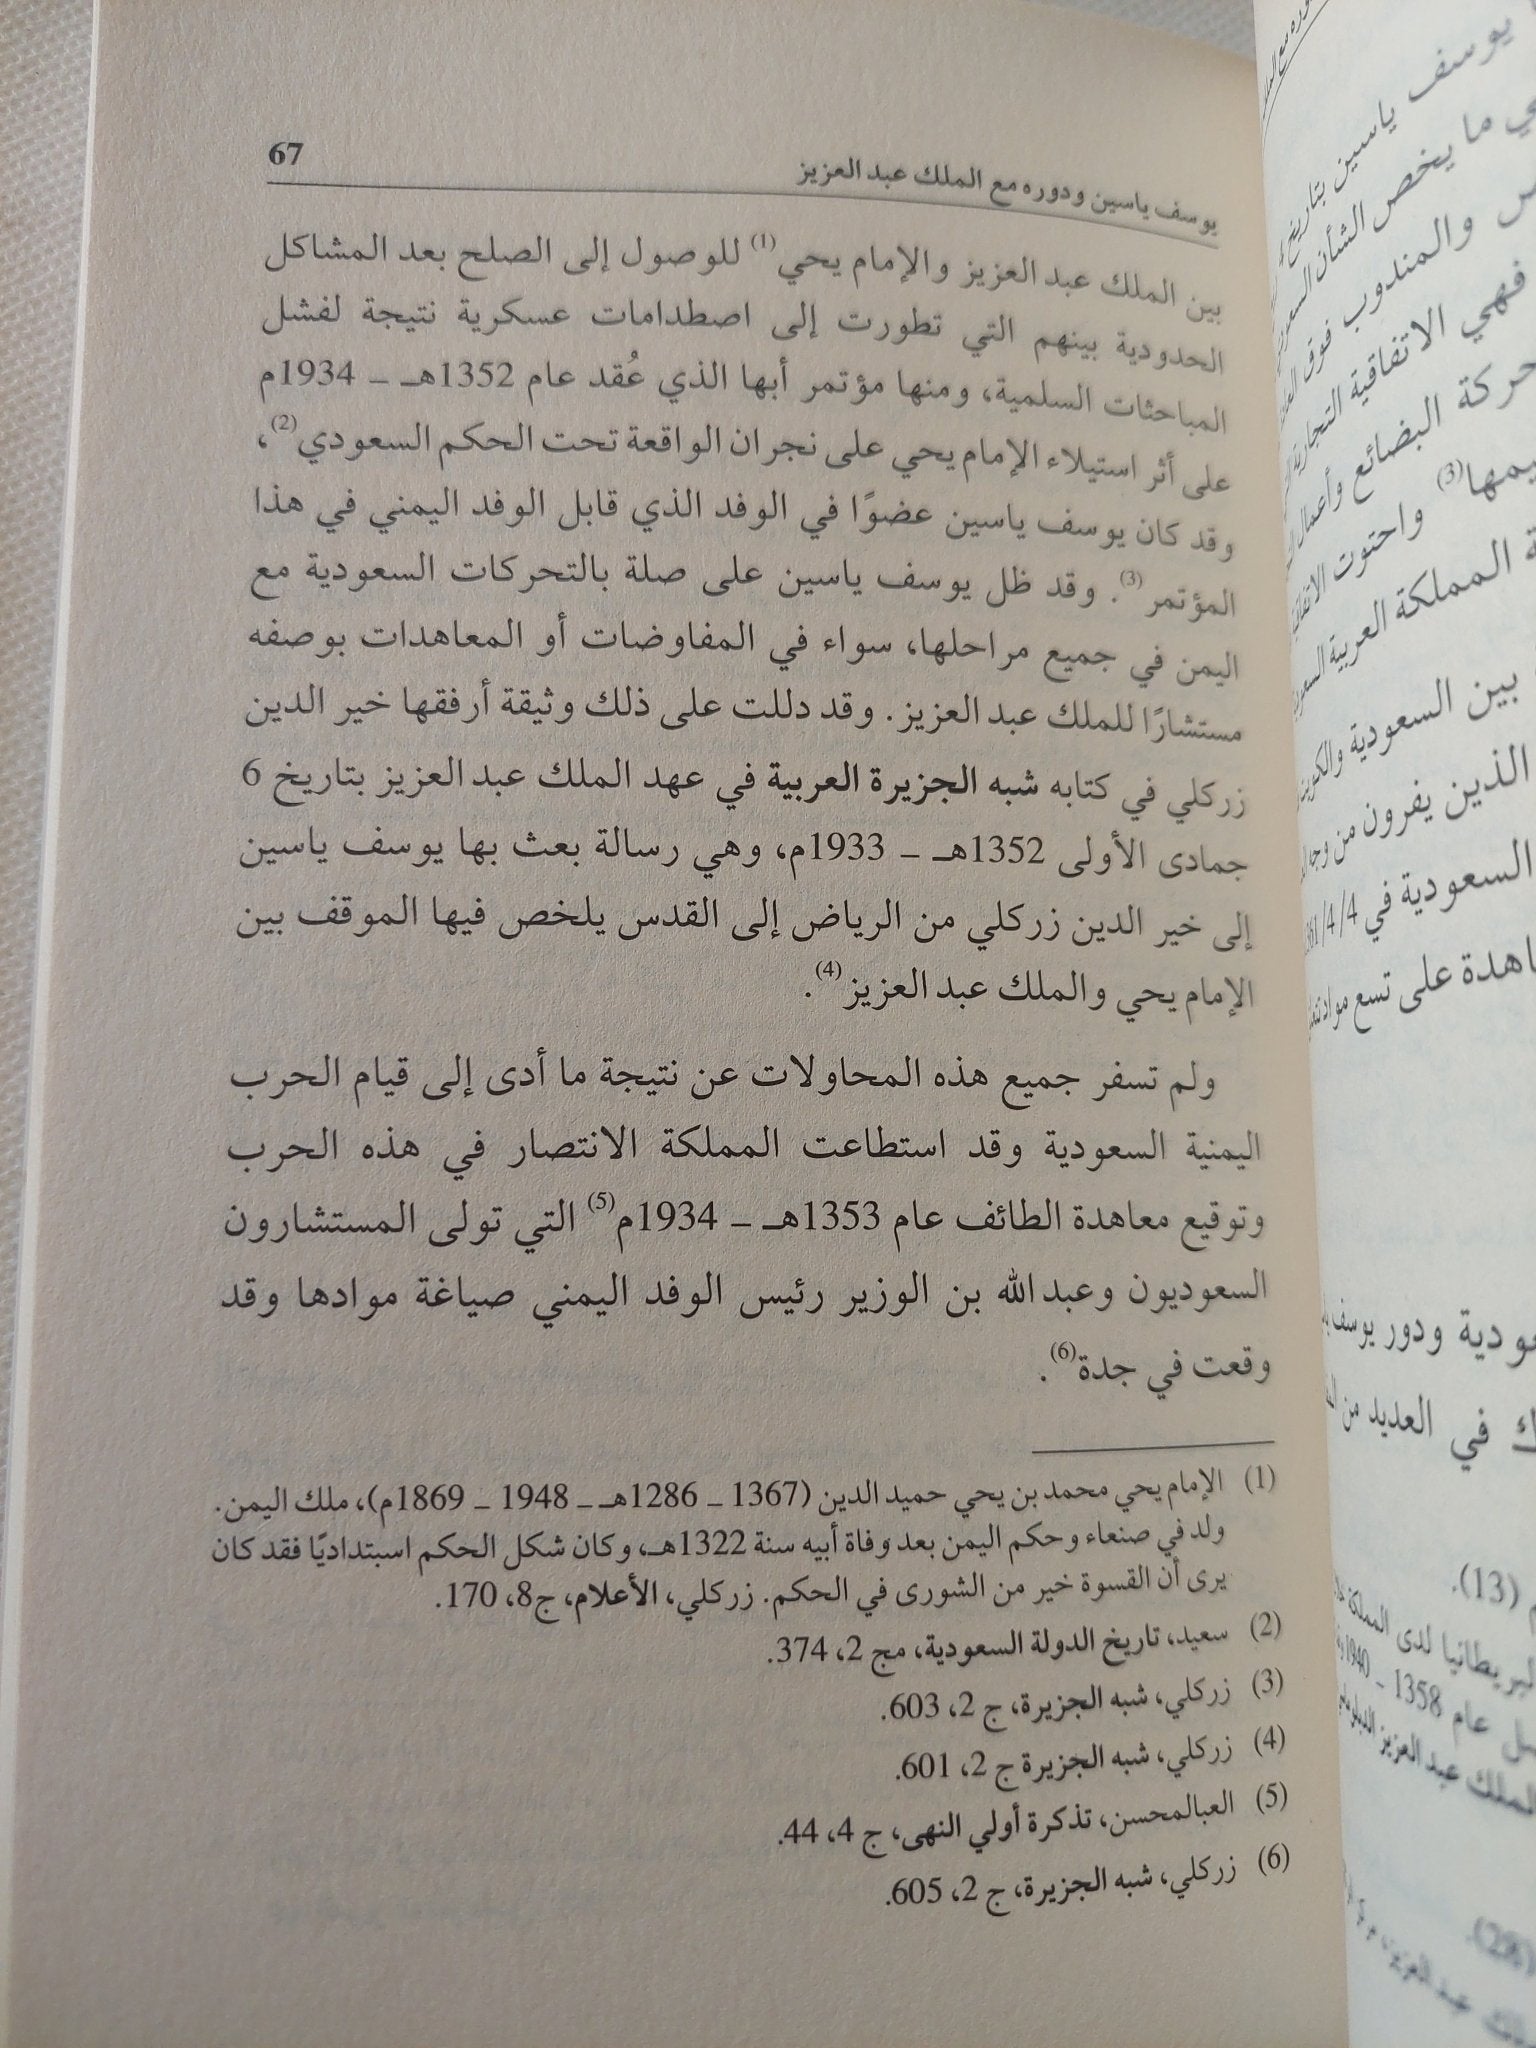 يوسف ياسين ودوره مع الملك عبد العزيز 67
بين الملك عبد العزيز والإمام يحي(1) للوصول إلى الصلح بعد المشاكل
الحدودية بينهم التي تطورت إلى اصطدامات عسكرية نتيجة لفشل
المباحثات السلمية، ومنها مؤتمر أبها الذي عُقد عام 1352هـ - 1934م
على أثر استيلاء الإمام يحي على نجران الواقعة تحت الحكم السعودي(2)،
وقد كان يوسف ياسين عضوًا في الوفد الذي قابل الوفد اليمني في هذا
المؤتمر(3). وقد ظل يوسف ياسين على صلة بالتحركات السعودية مع
اليمن في جميع مراحلها، سواء في المفاوضات أو المعاهدات بوصفه
مستشارًا للملك عبد العزيز. وقد دللت على ذلك وثيقة أرفقها خير الدين
زركلي في كتابه شبه الجزيرة العربية في عهد الملك عبد العزيز بتاريخ 6
جمادى الأولى 1352هـ - 1933م، وهي رسالة بعث بها يوسف ياسين
إلى خير الدين زركلي من الرياض إلى القدس يلخص فيها الموقف بين
الإمام يحي والملك عبد العزيز(4).
ولم تسفر جميع هذه المحاولات عن نتيجة ما أدى إلى قيام الحرب
اليمنية السعودية وقد استطاعت المملكة الانتصار في هذه الحرب
وتوقيع معاهدة الطائف عام 1353هـ - 1934م(5) التي تولى المستشارون
السعوديون وعبد الله بن الوزير رئيس الوفد اليمني صياغة موادها وقد
وقعت في جدة(6).
(1) الإمام يحي محمد بن يحي حميد الدين (1367 - 1286هـ - 1948 - 1869م)، ملك اليمن.
ولد في صنعاء وحكم اليمن بعد وفاة أبيه سنة 1322هـ، وكان شكل الحكم اسبتداديًا فقد كان
يرى أن القسوة خير من الشورى في الحكم. زركلي، الأعلام، ج8، 170.
(2) سعيد، تاريخ الدولة السعودية، مج 2، 374.
(3) زركلي، شبه الجزيرة، ج 2، 603.
(4) زركلي، شبه الجزيرة ج 2، 601.
(5) العبالمحسن، تذكرة أولي النهى، ج 4، 44.
(6) زركلي، شبه الجزيرة، ج 2، 605.
يوسف ياسين بتاريخ
ما يخص الشأن
والمندوب فوق
فهي الاتفاقية التجارية
حركة البضائع وأعمال
(3) واحتوت
المملكة العربية
بين السعودية والكويت
الذين يفرون من وجه
السعودية في 4/4/
على تسع مواد
ودور يوسف
في العديد من
(13).
لدى المملكة
عام 1358 - 1940
الملك عبد العزيز
(28).